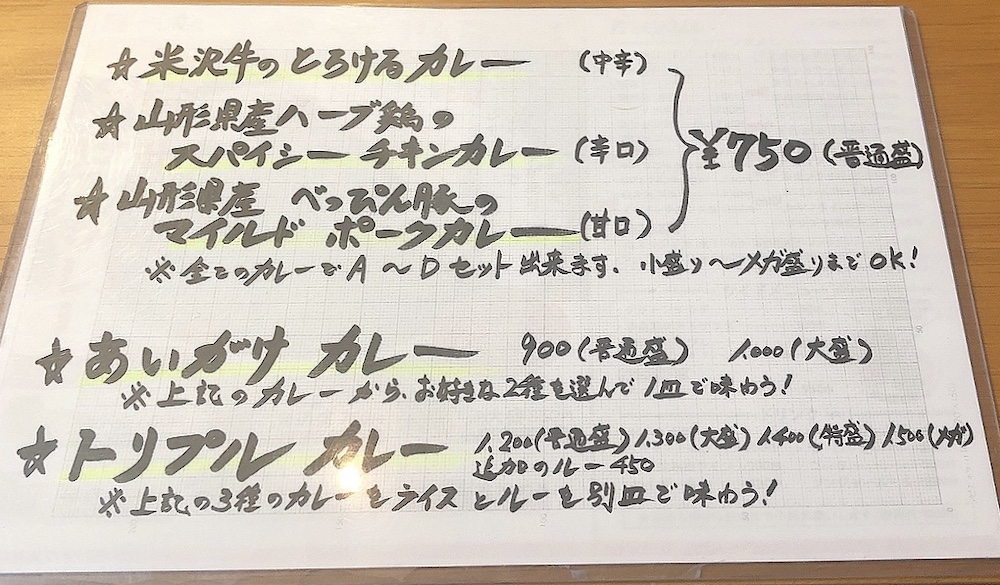 ☆米沢牛のとろけるカレー (中辛)
☆山形県産ハーブ鶏の
スパイシーチキンカレー (辛口) ¥750(普通盛)
☆山形県産 べっぴん豚の
マイルド ポークカレー (甘口)
※全てのカレーでA〜Dセット出来ます。小盛り〜メガ盛りまでOK!
☆あいがけ カレー 900(普通盛) 1,000(大盛)
※上記のカレーから、お好きな2種を選んで1皿で味わう!
☆トリプル カレー 1,200(普通盛) 1,300(大盛) 1,400(特盛) 1,500(メガ)
追加のルー450
※上記の3種のカレーをライスとルーを別皿で味わう!